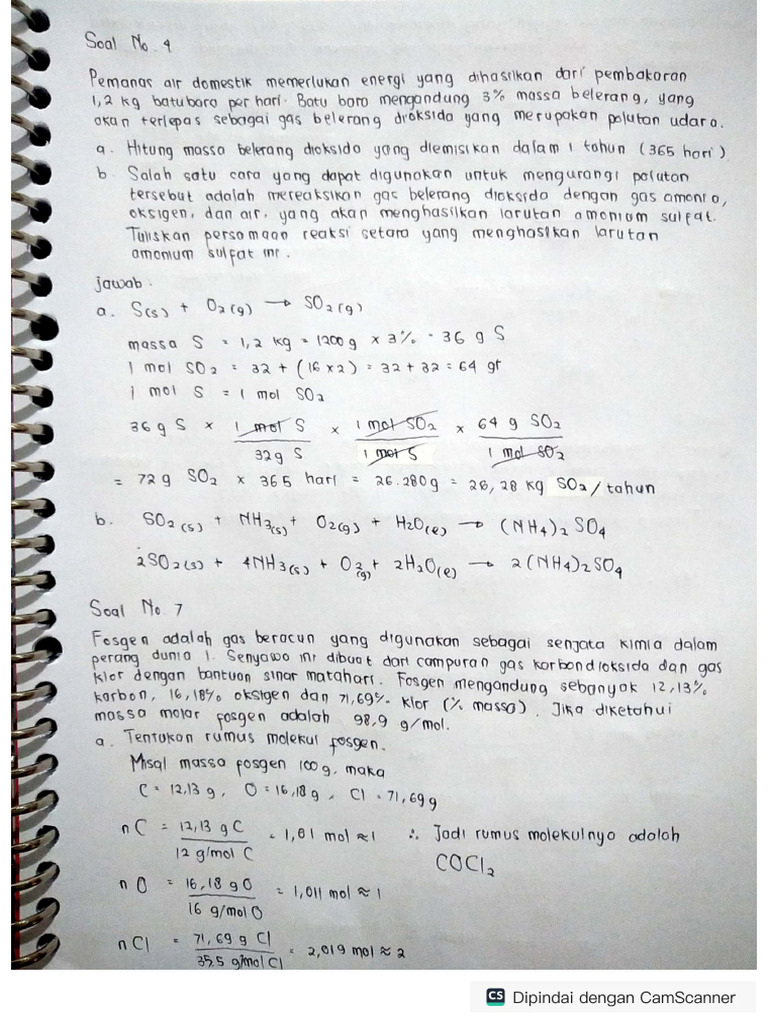 Soal No. 4
Pemanas air domestik memerlukan energi yang dihasilkan dari pembakaran
1,2 kg batubara per hari. Batu bara mengandung 3% massa belerang, yang
akan terlepas sebagai gas belerang dioksida yang merupakan polutan udara.
a. Hitung massa belerang dioksida yang diemisikan dalam 1 tahun (365 hari)
b. Salah satu cara yang dapat digunakan untuk mengurangi polutan
tersebut adalah mereaksikan gas belerang dioksida dengan gas amonia,
oksigen, dan air, yang akan menghasilkan larutan amonium sulfat.
Tuliskan persamaan reaksi setara yang menghasilkan larutan
amonium sulfat ini.
jawab :
a. S(s) + O2(g) → SO2(g)
massa S = 1,2 kg = 1200 g x 3% = 36 g S
1 mol SO2 = 32 + (16 x 2) = 32 + 32 = 64 gr
1 mol S = 1 mol SO2
36 g S x 1 mol S / 32 g S x 1 mol SO2 / 1 mol S x 64 g SO2 / 1 mol SO2
= 72 g SO2 x 365 hari = 26.280 g = 26,28 kg SO2/tahun
b. SO2(s) + NH3(s) + O2(g) + H2O(l) → (NH4)2 SO4
2SO2(s) + 4NH3(s) + O2(g) + 2H2O(l) → 2(NH4)2SO4
Soal No. 7
Fosgen adalah gas beracun yang digunakan sebagai senjata kimia dalam
perang dunia 1. Senyawa ini dibuat dari campuran gas karbondioksida dan gas
klor dengan bantuan sinar matahari. Fosgen mengandung sebanyak 12,13%
karbon, 16,18% oksigen dan 71,69% klor (% massa). Jika diketahui
massa molar fosgen adalah 98,9 g/mol.
a. Tentukan rumus molekul fosgen.
Misal massa fosgen 100 g, maka
C = 12,13 g, O = 16,18 g, Cl = 71,69 g
nC = 12,13 g C / 12 g/mol C = 1,01 mol ≈ 1
∴ Jadi rumus molekulnya adalah
COCl2
nO = 16,18 g O / 16 g/mol O = 1,011 mol ≈ 1
nCl = 71,69 g Cl / 35,5 g/mol Cl = 2,019 mol ≈ 2
CS Dipindai dengan CamScanner